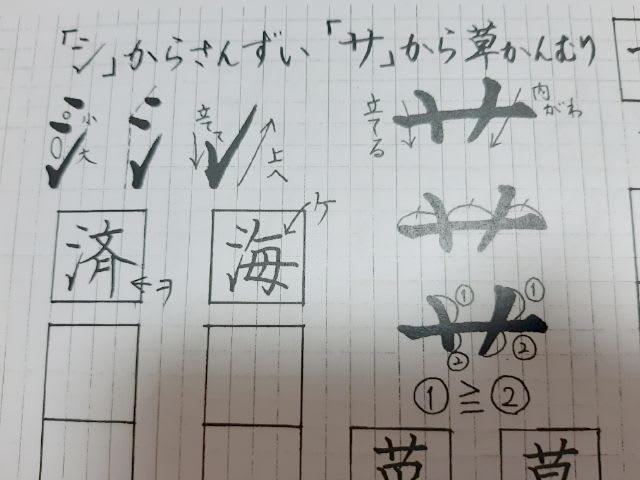 「シ」からさんずい 「サ」から草かんむり
小
大
立て
上へ
立てる
内がわ
済
ヨ
海
ケ
①
①
②
②
① ≧ ②
草